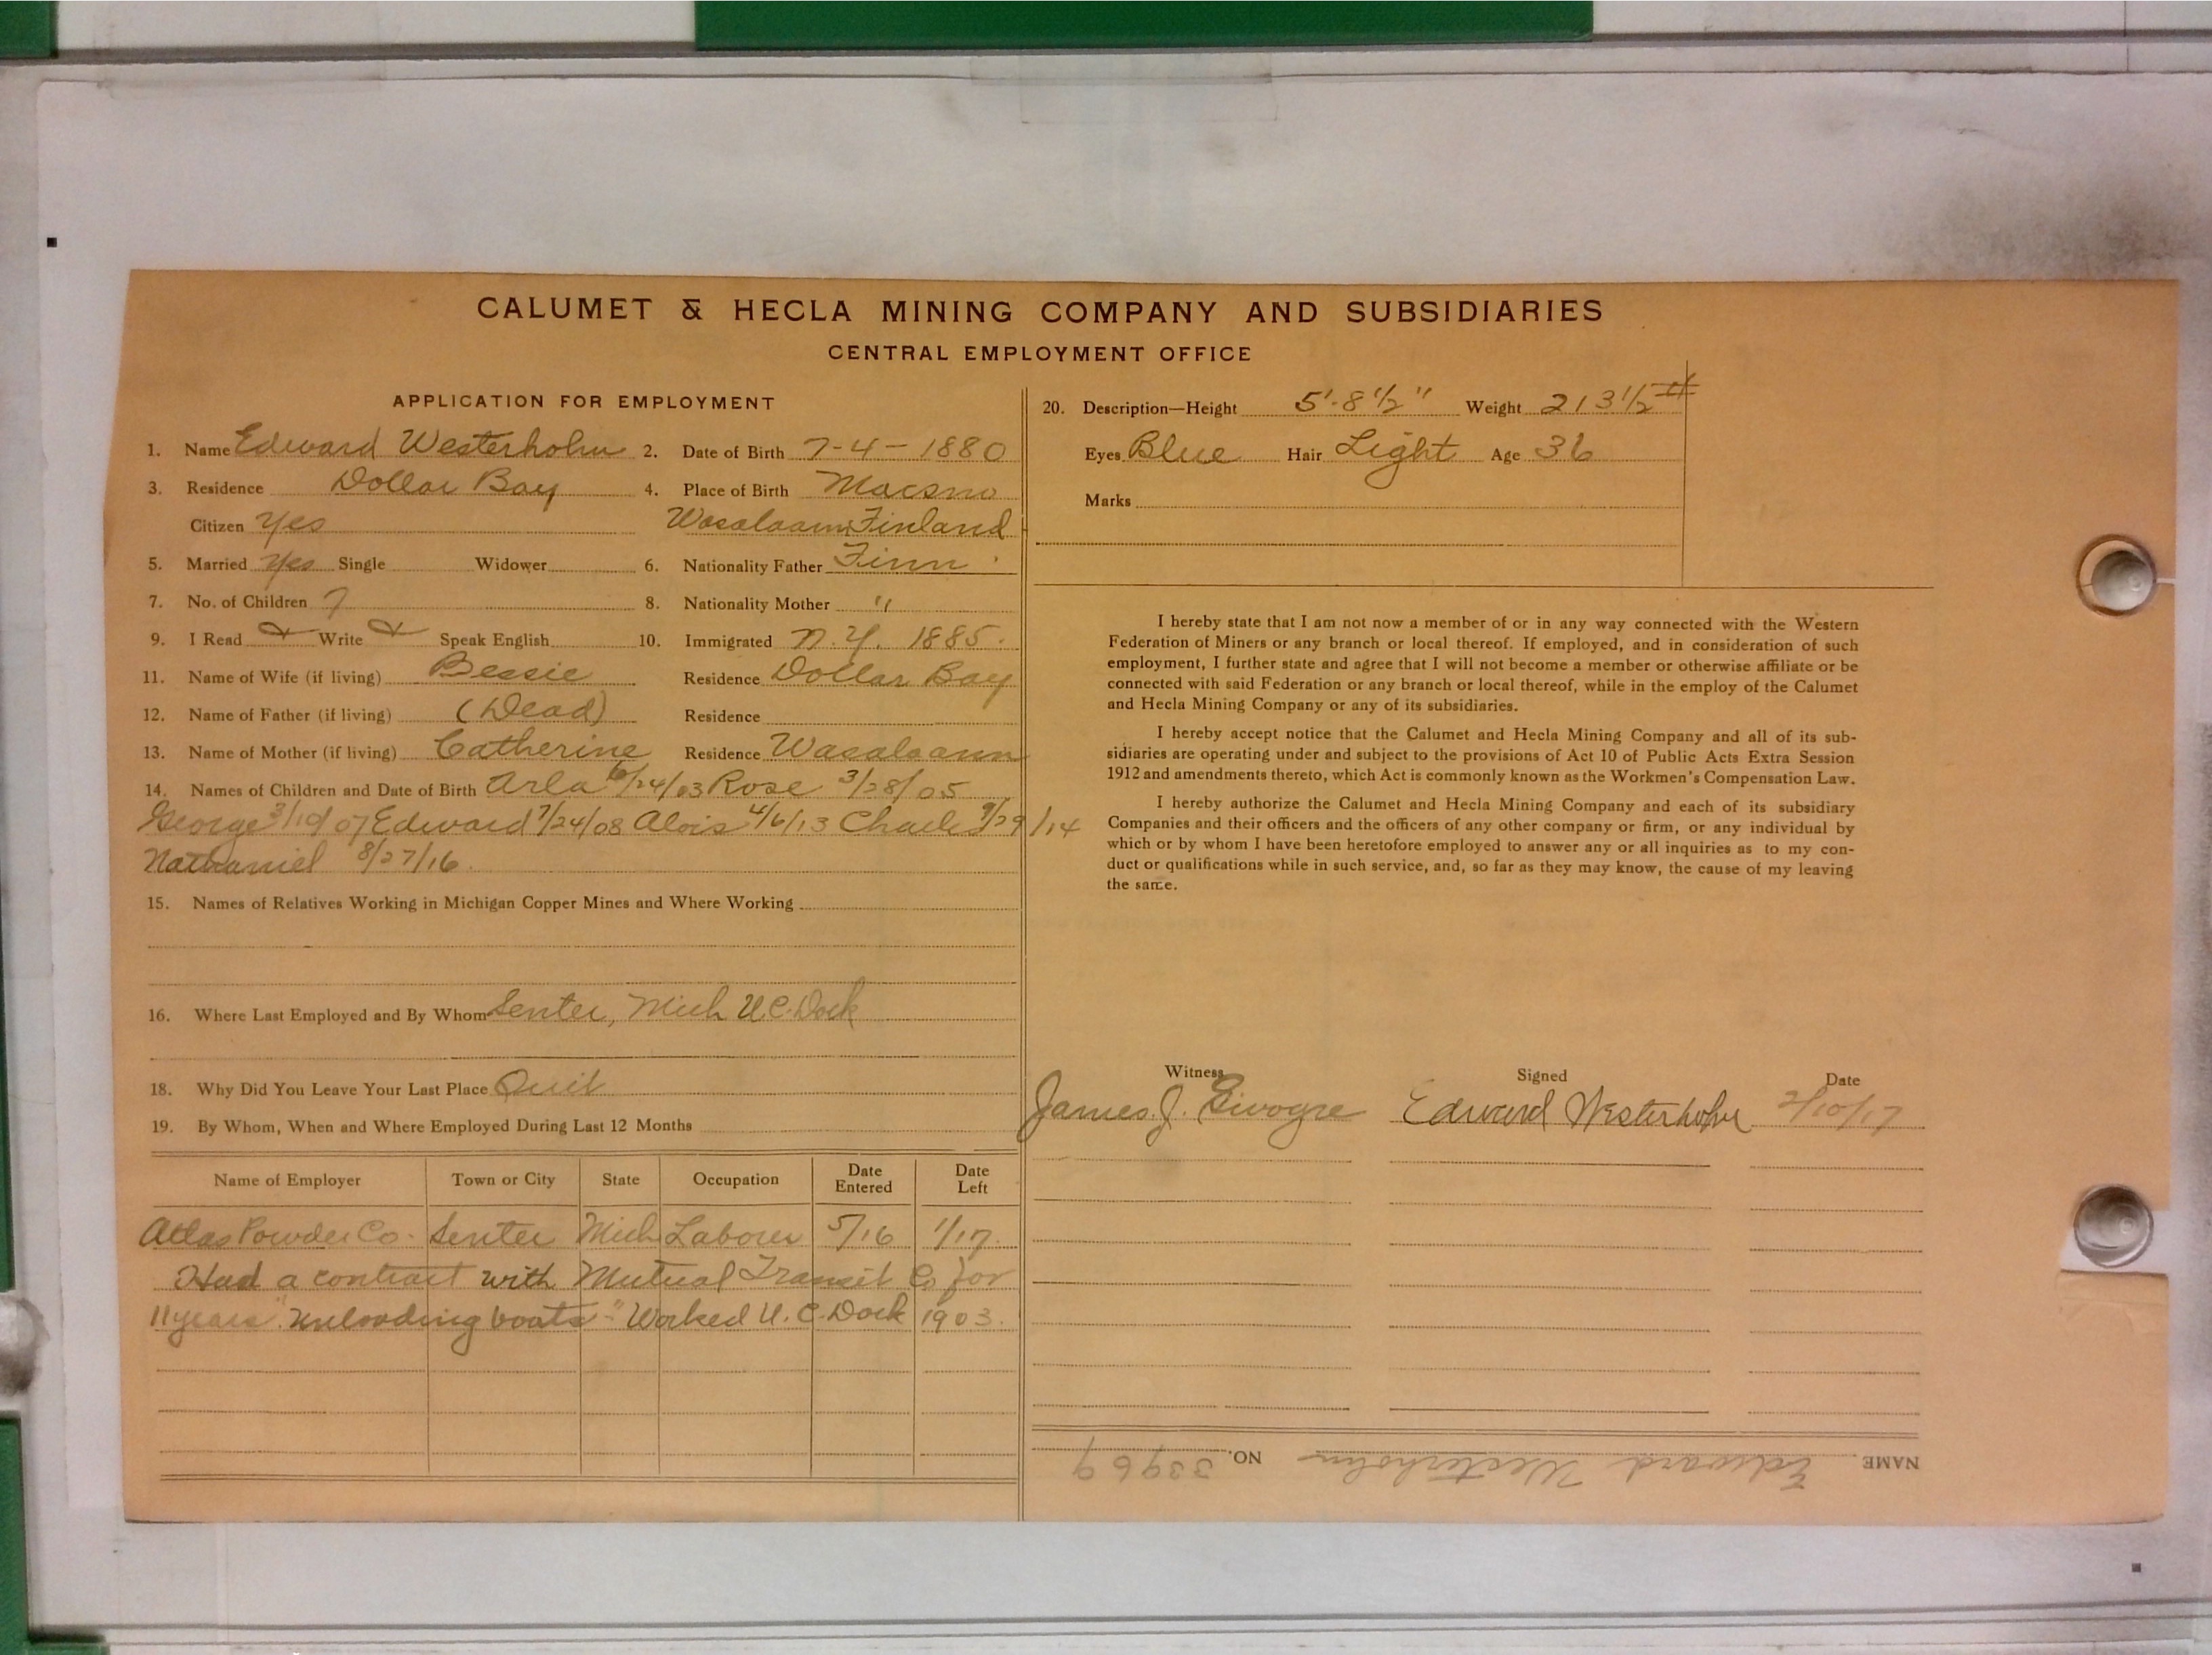 CALUMET & HECLA MINING COMPANY AND SUBSIDIARIES
CENTRAL EMPLOYMENT OFFICE
APPLICATION FOR EMPLOYMENT
1. Name Edward Westerholm 2. Date of Birth 7-4-1880
3. Residence Dollar Bay 4. Place of Birth
Citizen Yes Wasalaann Finland
5. Married Yes Single Widower 6. Nationality Father Finn
7. No. of Children 7 8. Nationality Mother "
9. I Read Write Speak English 10. Immigrated N.Y. 1885.
11. Name of Wife (if living) Bessie Residence Dollar Bay
12. Name of Father (if living) (Dead) Residence
13. Name of Mother (if living) Catherine Residence Wasalaann
14. Names of Children and Date of Birth Arla 6/24/03 Rose 3/28/05
George 3/10/07 Edward 7/24/08 Alois 4/6/13 Charles 9/29/14
Nathaniel 8/27/16.
15. Names of Relatives Working in Michigan Copper Mines and Where Working
16. Where Last Employed and By Whom Senter, Mich U.C. Dock
18. Why Did You Leave Your Last Place Quit
19. By Whom, When and Where Employed During Last 12 Months
Name of Employer Town or City State Occupation Date Entered Date Left
Atlas Powder Co. Senter Mich Laborer 5/16 1/17.
Had a contract with Mutual Transit Co for
11 years "Unloading boats" Worked U.C. Dock 1903.
20. Description—Height 5'-8 1/2" Weight 213 1/2 #
Eyes Blue Hair Light Age 36
Marks
I hereby state that I am not now a member of or in any way connected with the Western
Federation of Miners or any branch or local thereof. If employed, and in consideration of such
employment, I further state and agree that I will not become a member or otherwise affiliate or be
connected with said Federation or any branch or local thereof, while in the employ of the Calumet
and Hecla Mining Company or any of its subsidiaries.
I hereby accept notice that the Calumet and Hecla Mining Company and all of its sub-
sidiaries are operating under and subject to the provisions of Act 10 of Public Acts Extra Session
1912 and amendments thereto, which Act is commonly known as the Workmen's Compensation Law.
I hereby authorize the Calumet and Hecla Mining Company and each of its subsidiary
Companies and their officers and the officers of any other company or firm, or any individual by
which or by whom I have been heretofore employed to answer any or all inquiries as to my con-
duct or qualifications while in such service, and, so far as they may know, the cause of my leaving
the same.
Witness Signed Date
James J. Edward Westerholm 2/10/17
NAME Edward Westerholm NO. 33969